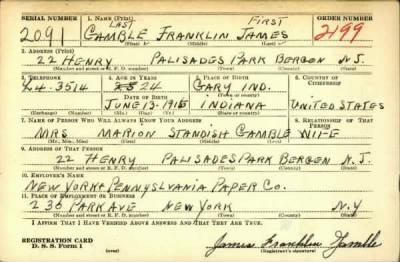 SERIAL NUMBER 1. NAME (Print) ORDER NUMBER
LAST FIRST
2091 GAMBLE FRANKLIN JAMES 2199
(First) (Middle) (Last)
2. ADDRESS (Print)
22 HENRY PALISADES PARK BERGEN N.J.
(Number and street or R. F. D. number) (Town) (County) (State)
3. TELEPHONE 4. AGE IN YEARS 5. PLACE OF BIRTH 6. COUNTRY OF CITIZENSHIP
4-3514 24 GARY IND.
DATE OF BIRTH (Town or county)
JUNE 13-1916 INDIANA UNITED STATES
(Exchange) (Number) (Mo.) (Day) (Yr.) (State or country)
7. NAME OF PERSON WHO WILL ALWAYS KNOW YOUR ADDRESS 8. RELATIONSHIP OF THAT PERSON
MRS. MARION STANDISH GAMBLE WIFE
(Mr., Mrs., Miss) (First) (Middle) (Last)
9. ADDRESS OF THAT PERSON
22 HENRY PALISADES PARK BERGEN N.J.
(Number and street or R. F. D. number) (Town) (County) (State)
10. EMPLOYER'S NAME
NEW YORK & PENNYSLVANIA PAPER CO.
11. PLACE OF EMPLOYMENT OR BUSINESS
230 PARK AVE NEW YORK N.Y
(Number and street or R. F. D. number) (Town) (County) (State)
I AFFIRM THAT I HAVE VERIFIED ABOVE ANSWERS AND THAT THEY ARE TRUE.
REGISTRATION CARD
D. S. S. Form 1
James Franklin Gamble
(Registrant's signature)